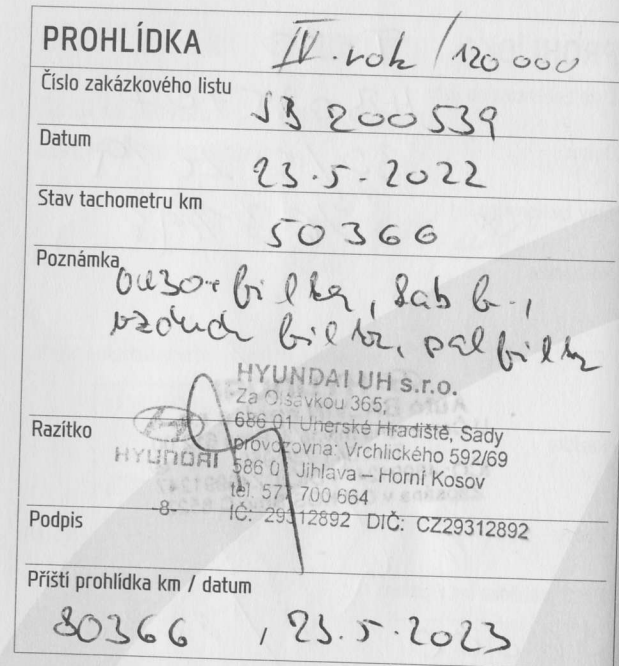 PROHLÍDKA IV. rok / 120 000
Číslo zakázkového listu
JB 200539
Datum
23.5.2022
Stav tachometru km
50366
Poznámka
filtr, kab f.,
vzduch filtr, pal filtr
HYUNDAI UH s.r.o.
Za Olšávkou 365,
686 01 Uherské Hradiště, Sady
Razítko
provozovna: Vrchlického 592/69
HYUNDAI
586 01 Jihlava – Horní Kosov
tel. 577 700 664
-8-
IČ: 29312892 DIČ: CZ29312892
Podpis
Příští prohlídka km / datum
80366 , 23.5.2023